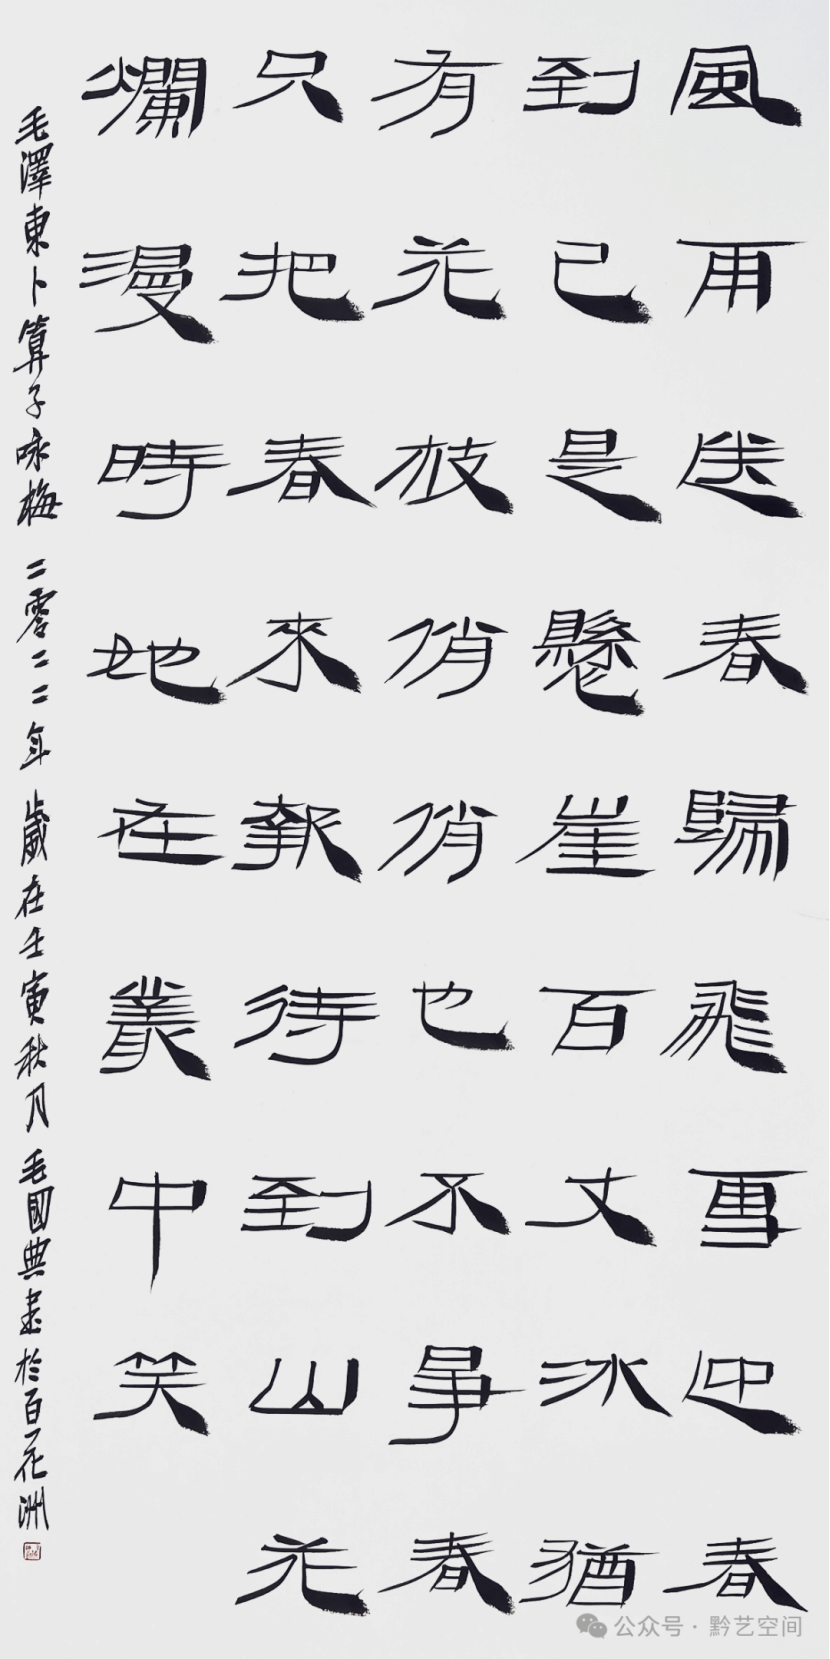 風雨送春歸飛雪迎春
到已是懸崖百丈冰猶
有花枝俏俏也不爭春
只把春來報待到山花
爛漫時她在叢中笑
毛澤東卜算子咏梅 二零二二年 歲在壬寅秋月 毛國典書於百花洲
公众号 · 黔艺空间